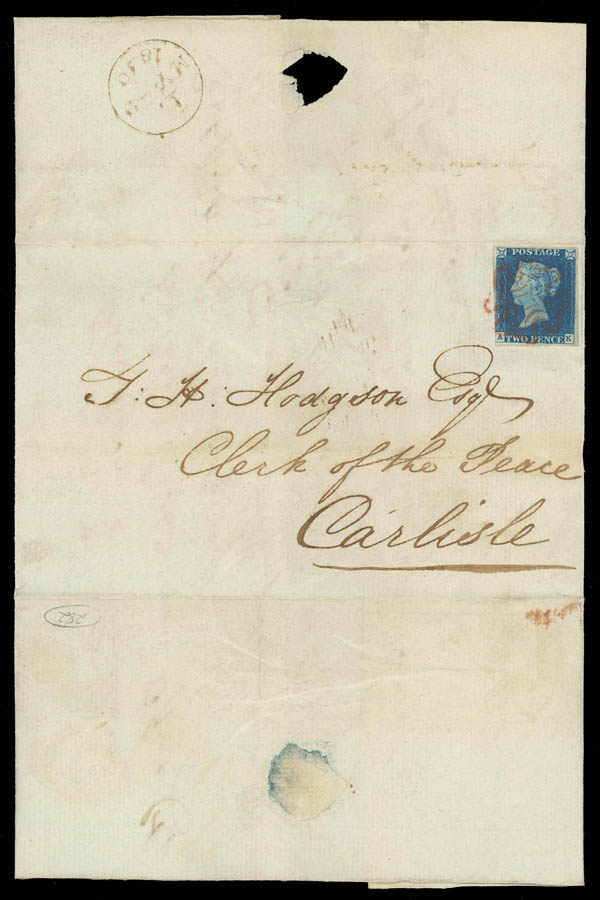 POSTAGE
A TWO PENCE K
T: H: Hodgson Esq
Clerk of the Peace
Carlisle
282